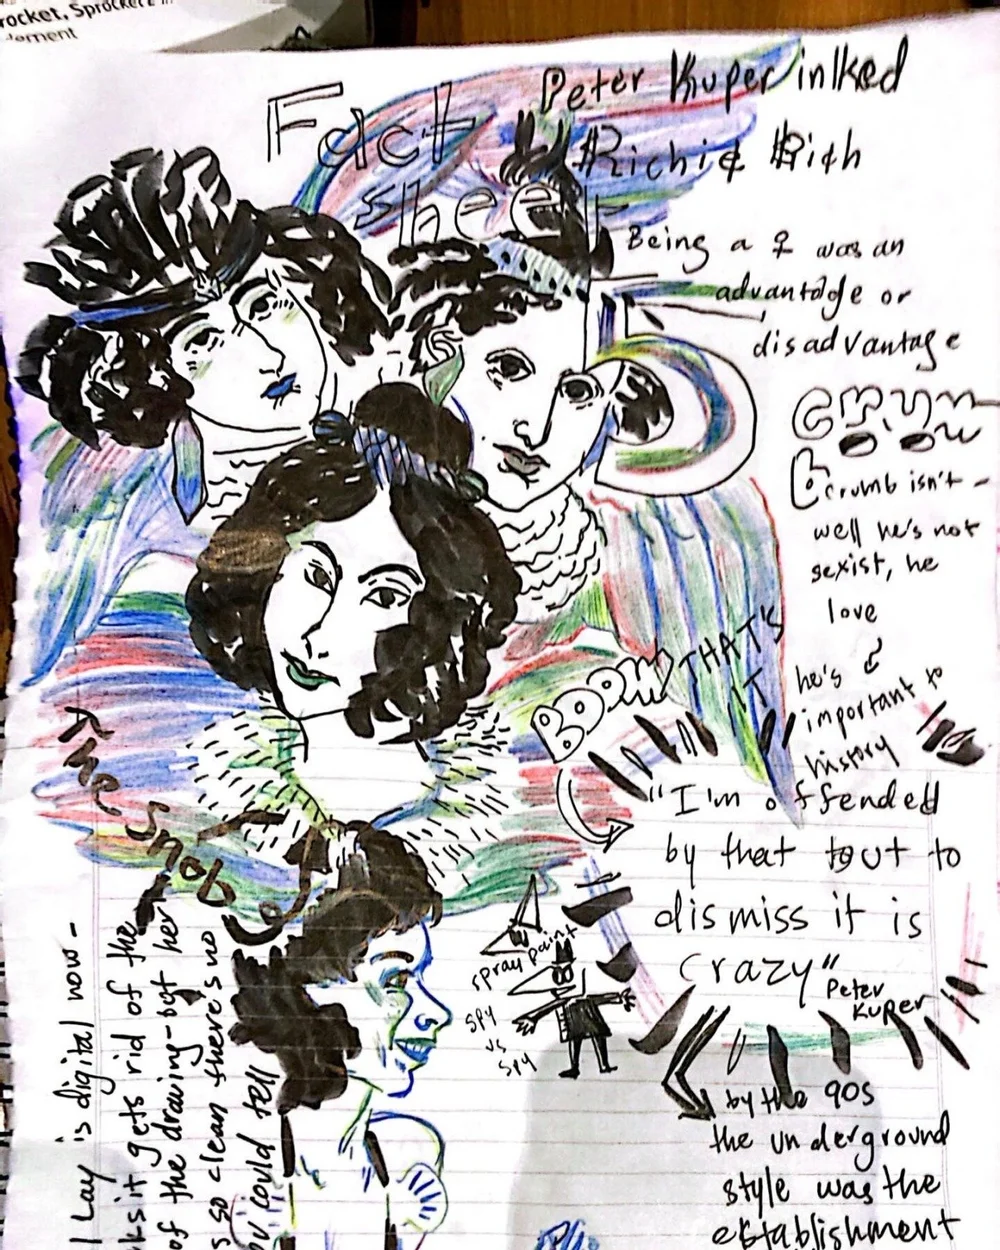 rocket, Sprocket
ement
Fact
Sheet
Peter Kuper inked
$Richie $Rich
Being a ♀ was an
advantage or
disadvantage
crum
crumb isn't -
well he's not
sexist, he
love
he's
important to
history
BOOM THAT'S
IT
"I'm offended
by that but to
dismiss it is
crazy"
Peter
Kuper
spray paint
SPY
VS
SPY
by the 90s
the underground
style was the
establishment
The Snob
Lay is digital now -
ks it gets rid of the
of the drawing - bqt her
s so clean there's no
ou could tell